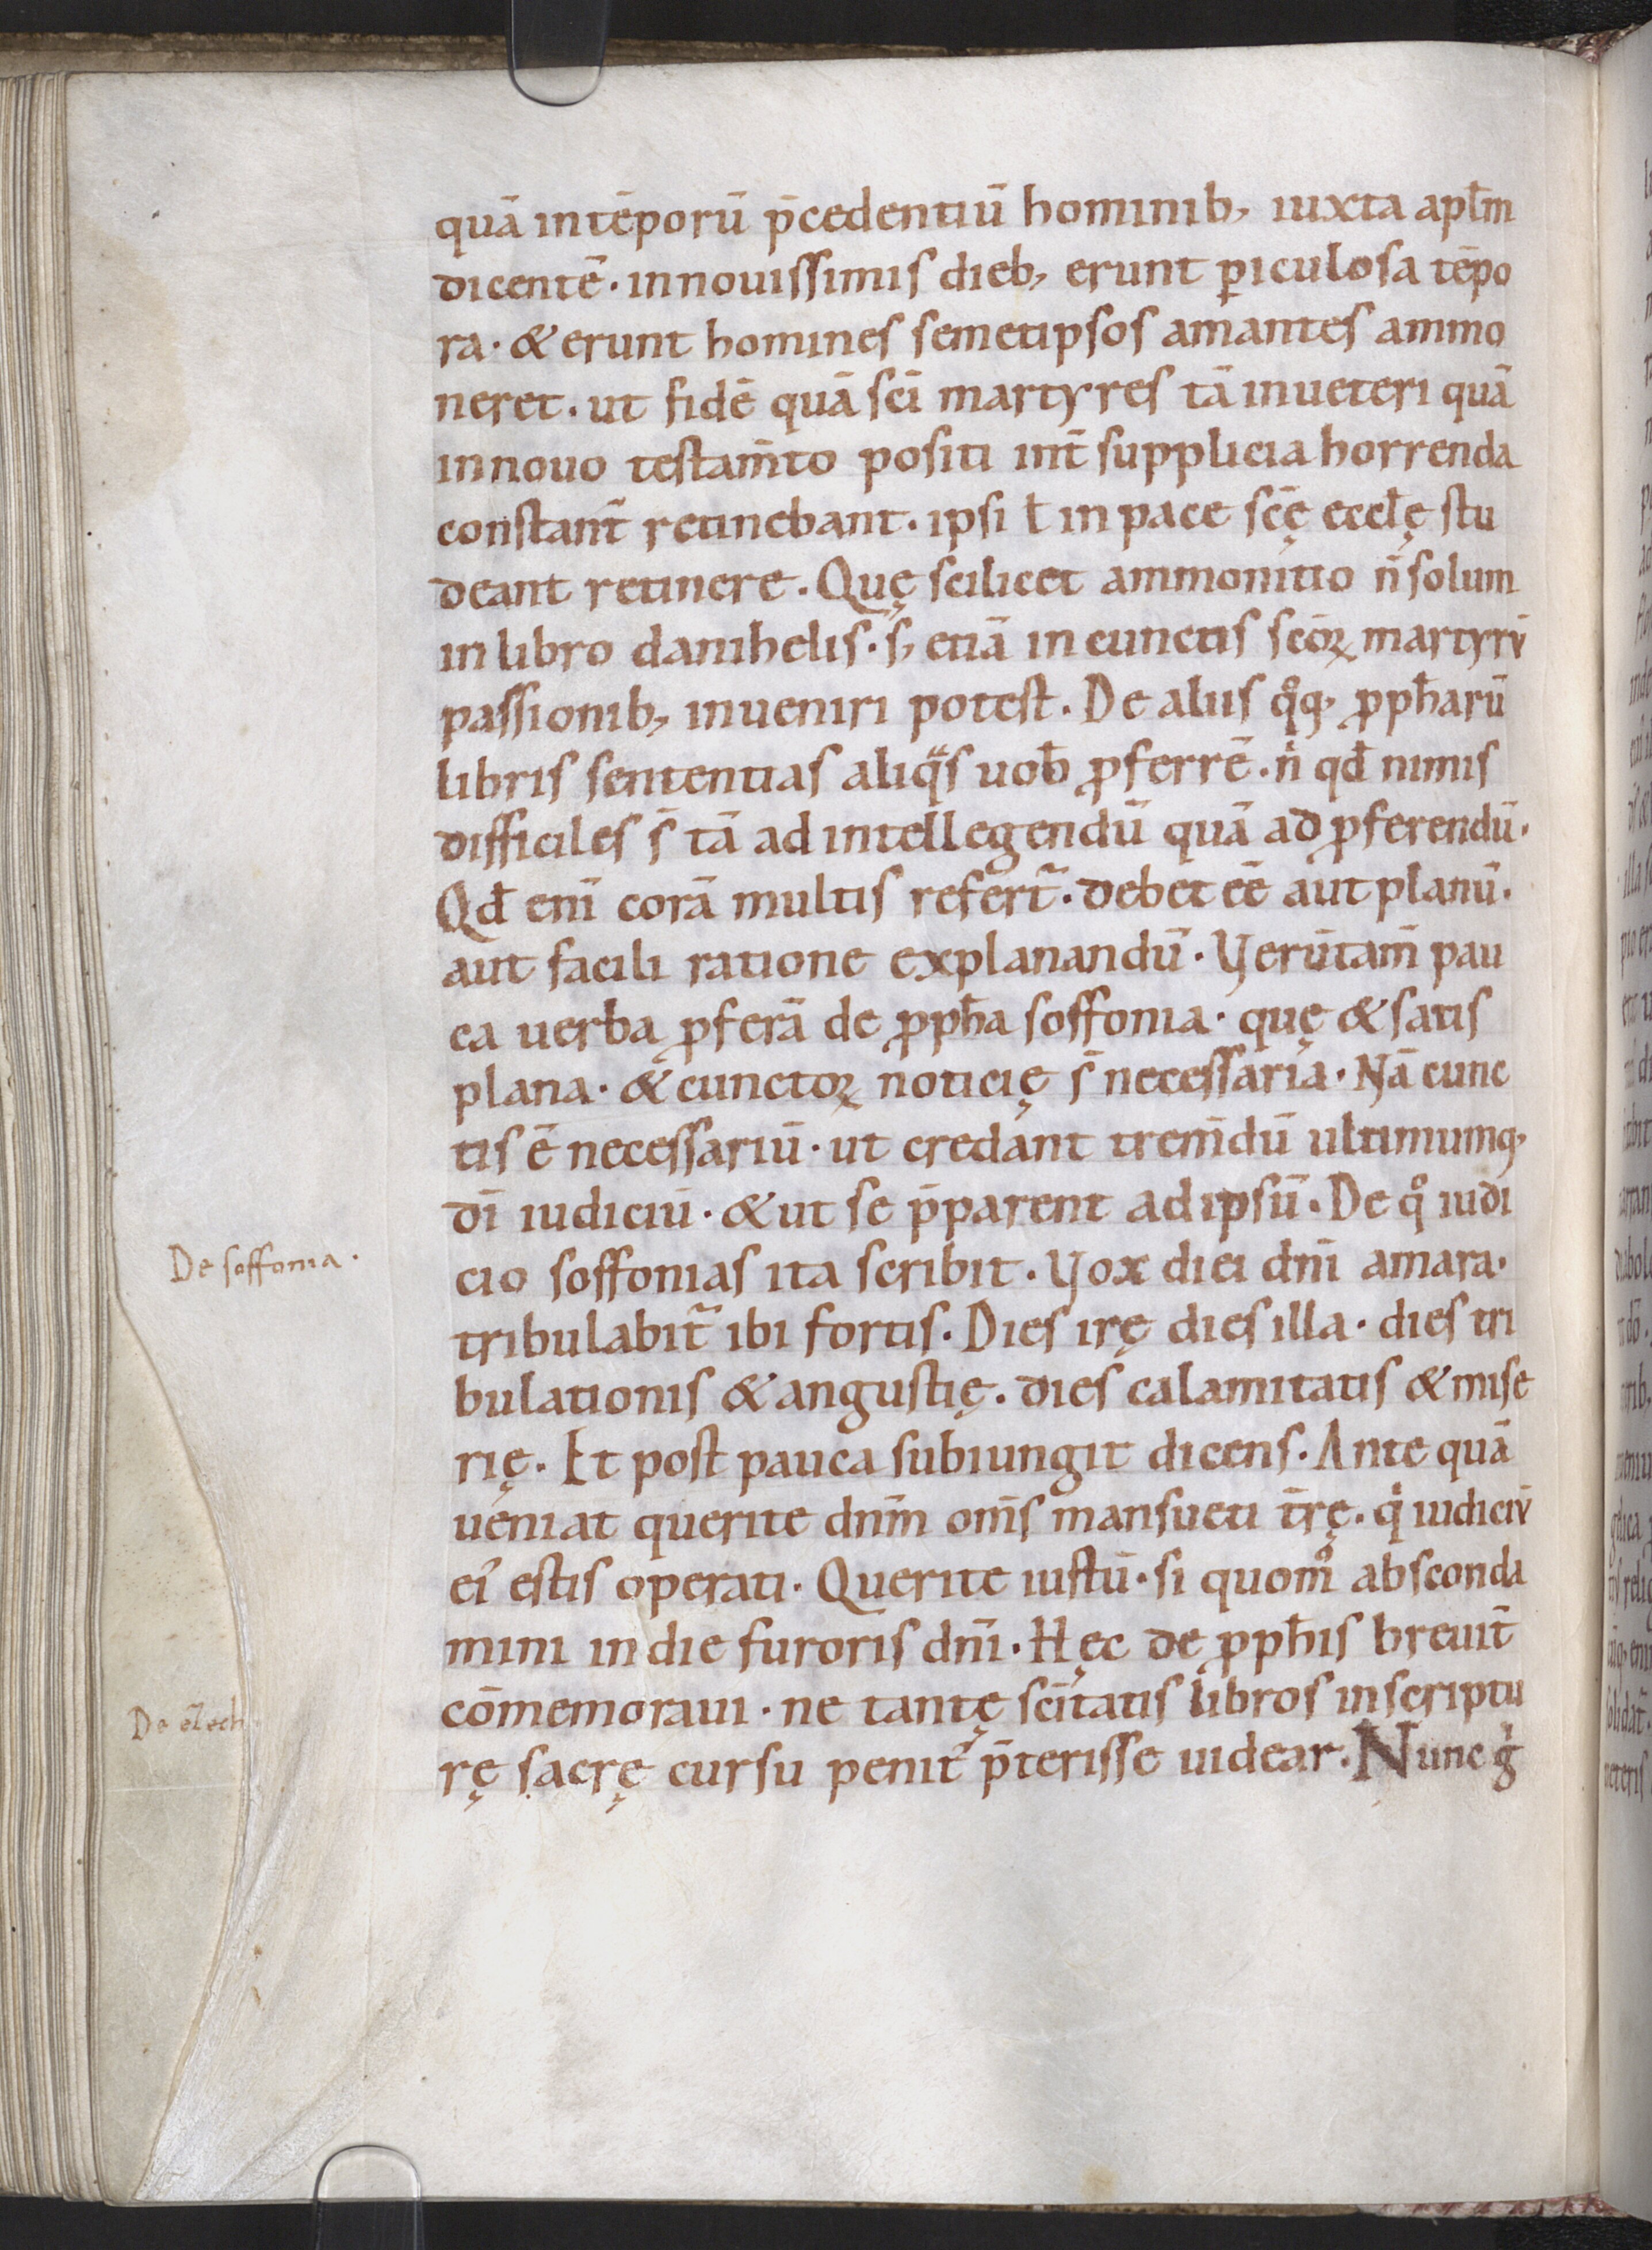 quā intēporū p̄cedentiū hominib; iuxta apl̄m
dicentē· innouissimis dieb; erunt ꝑiculosa tēpo
ra· & erunt homines semetipsos amantes ammo
neret· ut fidē quā sc̄i martyres tā inueteri quā
innouo testam̄to positi int̄ supplicia horrenda
constant̄ retinebant· ipsi ł in pace sc̄ę eccłę stu
deant retinere· Quę scilicet ammonitio n̄ solum
in libro danihelis· s; etiā in cunctis sc̄oꝝ martyrū
passionib; inueniri potest· De aliis qͦq; ꝓph̄arū
libris sententias aliqͣs uob̄ ꝓferrē· nͥ qd̄ nimis
difficiles s̄ tā ad intellegendū quā ad ꝓferendū·
Qd̄ eni̅ corā multis refert᷑· debet ēe aut planū·
aut facili ratione explanandū· Verūtam̄ pau
ca uerba ꝓferā de ꝓph̄a soffonia· quę & satis
plana· & cunctoꝝ noticię s̄ necessaria· Nā cunc
tis ē necessariū· ut credant trem̄dū ultimumq;
dī iudiciū· & ut se p̄parent ad ipsū· De qͦ iudi
De soffonia·
cio soffonias ita scribit· Vox diei dn̄i amara·
tribulabit᷑ ibi fortis· Dies irę dies illa· dies tri
bulationis & angustię· dies calamitatis & mise
rię· Et post pauca subiungit dicens· Ante quā
ueniat querite dn̄m om̄s mansueti t̄rę· qͥ iudiciū
ei᾿ estis operati· Querite iustū· si quom̊ absconda
mini in die furoris dn̄i· Hęc de ꝓph̄is breuit̄
cōmemoraui· ne tantę sc̄itatis libros in scriptu
rę sacrę cursu penit᾿ p̄terisse uidear· Nunc gͥ